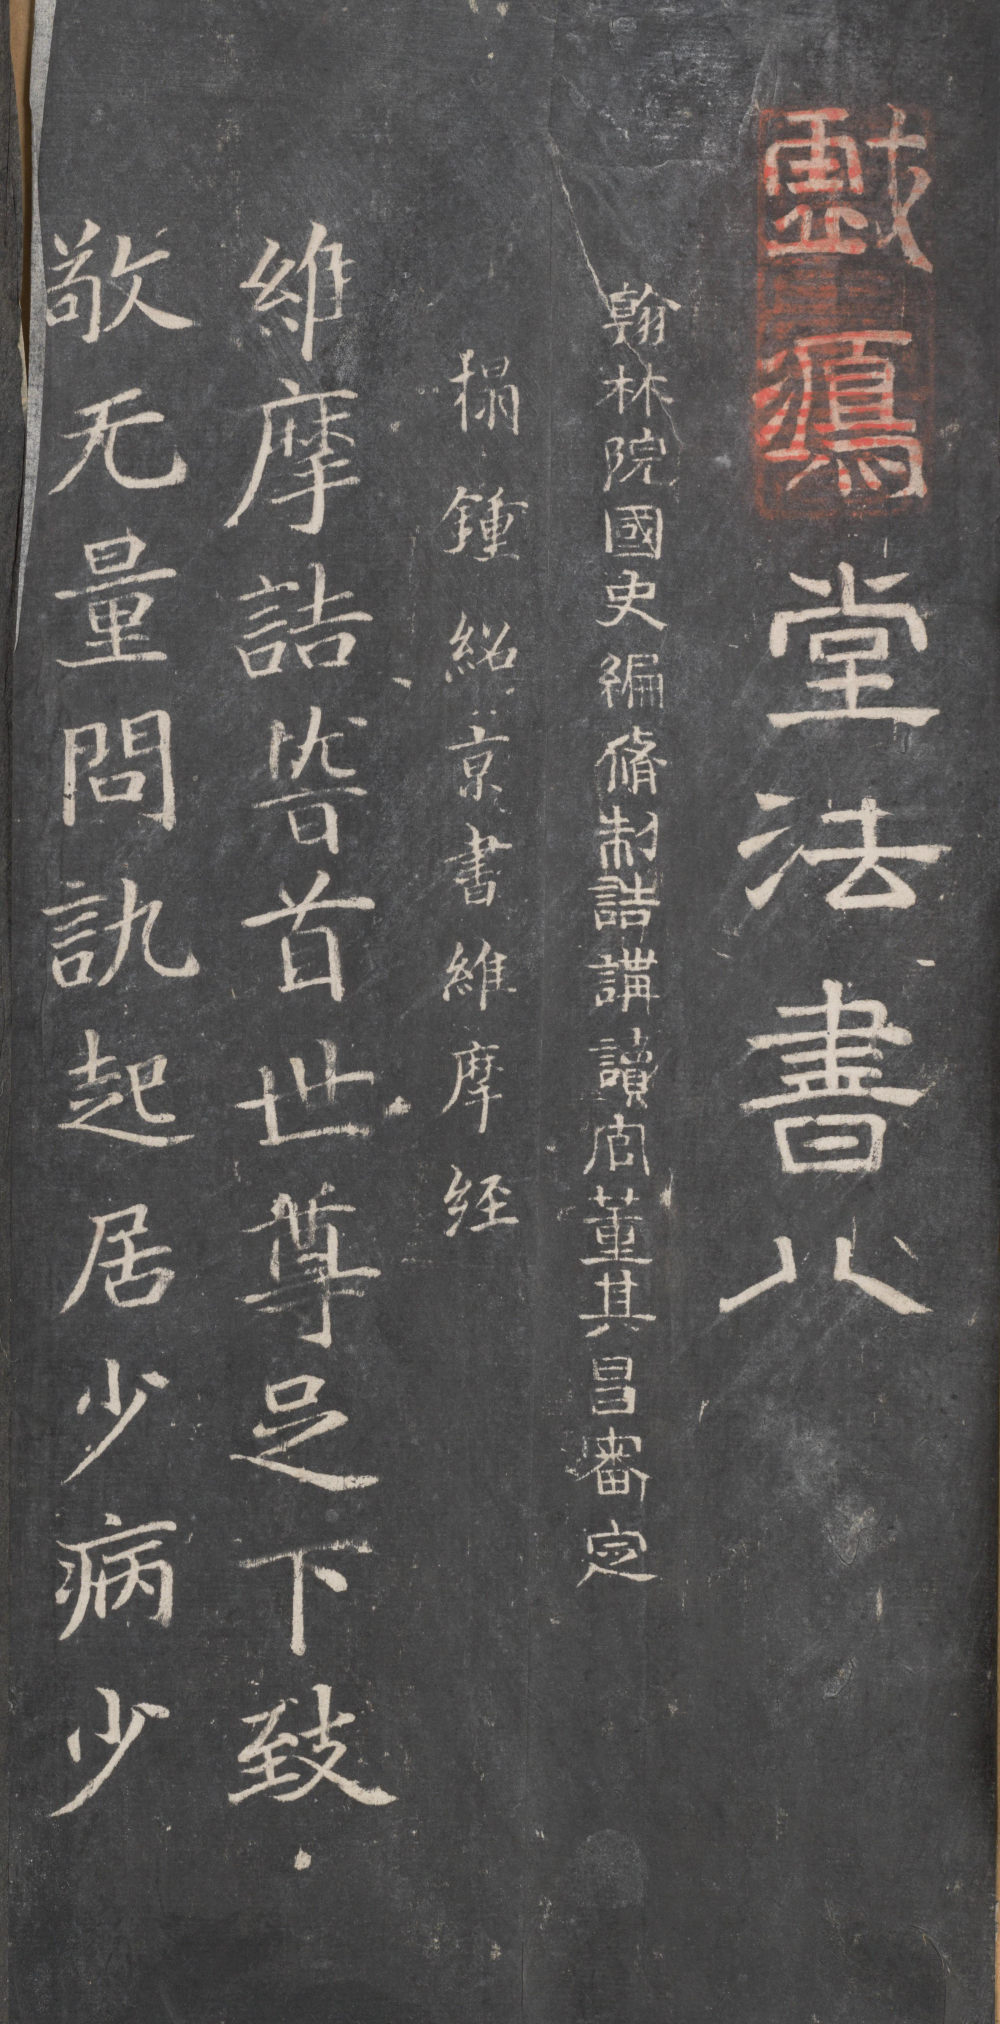 戲鴻堂法書八
翰林院國史編脩制誥講讀官董其昌審定
搨鍾紹京書維摩經
維摩詰䭫首世尊足下致
敬无量問訊起居少病少